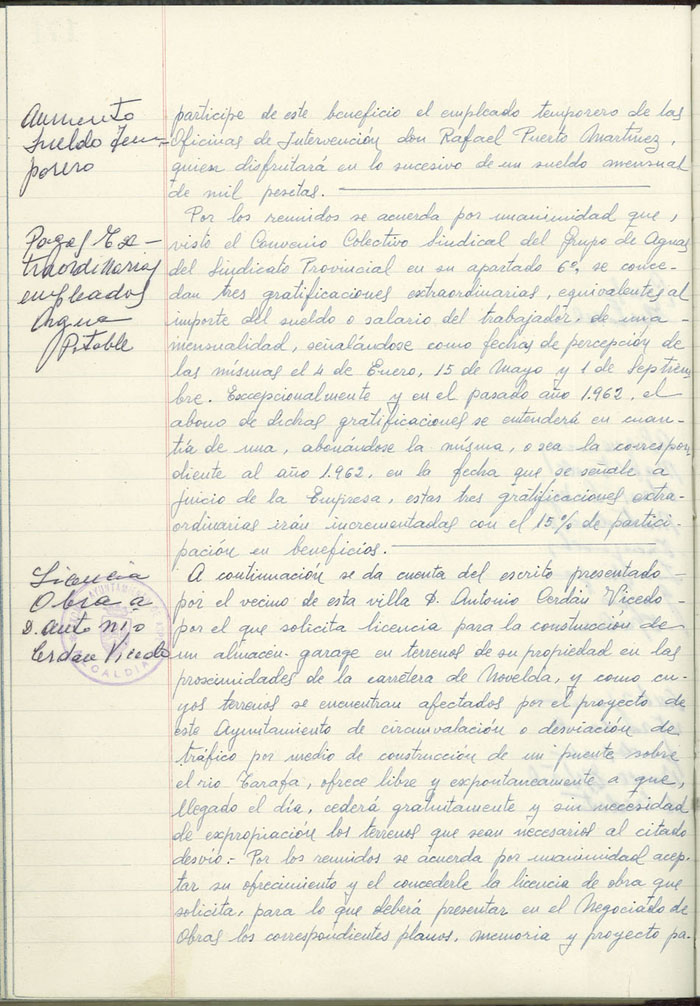 Aumento
sueldo Tem-
porero
partícipe de este beneficio el empleado temporero de las
Oficinas de Intervención don Rafael Puerto Martínez,
quien disfrutará en lo sucesivo de un sueldo mensual
de mil pesetas.
Pagas Ex-
traordinarias
empleados
Agua
Potable
Por los reunidos se acuerda por unanimidad que,
visto el Convenio Colectivo Sindical del Grupo de Aguas
del Sindicato Provincial en su apartado 6º, se conce-
dan tres gratificaciones extraordinarias, equivalentes al
importe del sueldo o salario del trabajador de una
mensualidad, señalándose como fechas de percepción de
las mismas el 4 de Enero, 15 de Mayo y 1 de Septiem
bre. Excepcionalmente y en el pasado año 1.962, el
abono de dichas gratificaciones se entenderá en cuan-
tía de una, abonándose la misma, o sea la correspon
diente al año 1.962, en la fecha que se señale a
juicio de la Empresa, estas tres gratificaciones extra-
ordinarias irán incrementadas con el 15% de partici-
pación en beneficios.
Licencia
Obra a
D. Antonio
Cerdán Vicedo
ALCALDIA
A continuación se da cuenta del escrito presentado
por el vecino de esta villa D. Antonio Cerdán Vicedo
por el que solicita licencia para la construcción de
un almacén-garage en terrenos de su propiedad en las
proscimidades de la carretera de Novelda, y como cu-
yos terrenos se encuentran afectados por el proyecto de
este Ayuntamiento de circunvalación o desviación de
tráfico por medio de construcción de un puente sobre
el rio Tarafa, ofrece libre y expontaneamente a que,
llegado el día, cederá gratuitamente y sin necesidad
de expropiación los terrenos que sean necesarios al citado
desvío.- Por los reunidos se acuerda por unanimidad acep-
tar su ofrecimiento y el concederle la licencia de obra que
solicita, para lo que deberá presentar en el Negociado de
Obras los correspondientes planos, memoria y proyecto pa-